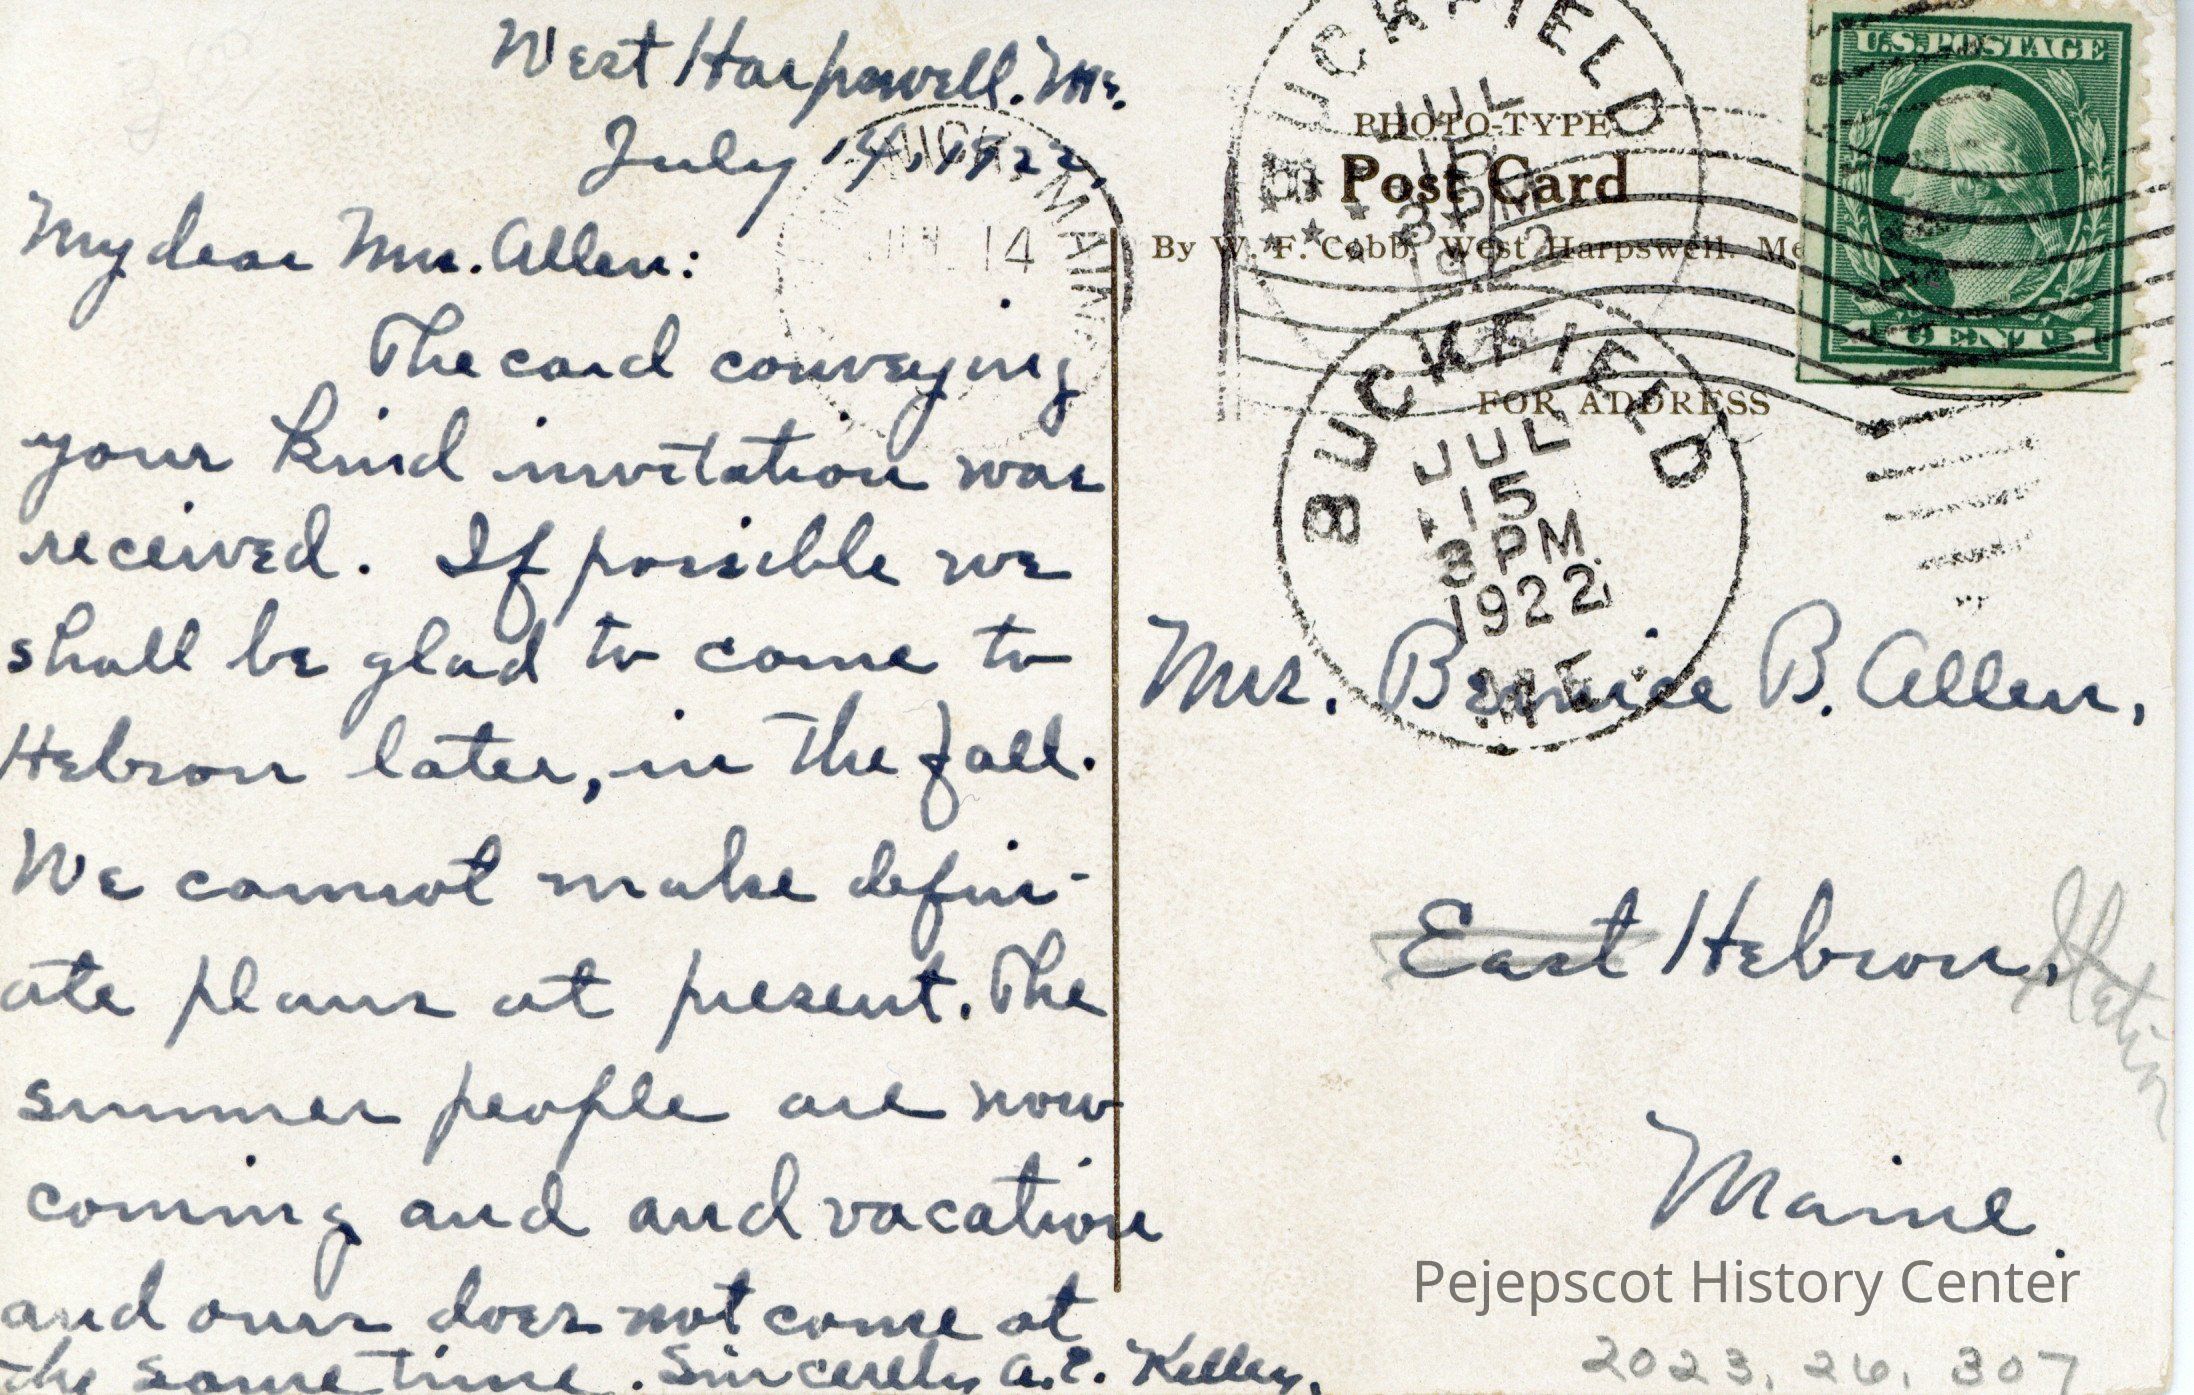 West Harpswell. Me.
July 14, 1922.
My dear Mrs. Allen:
The card conveying
your kind invitation was
received. If possible we
shall be glad to come to
Hebron later, in the fall.
We cannot make defin-
ate plans at present. The
summer people are now
coming and and vacation
and ours does not come at
the same time. Sincerely A.E. Kelley.
BUCKFIELD
JUL
15
3 PM
1922
PHOTO-TYPE
Post Card
By W. F. Cobb, West Harpswell. Me
FOR ADDRESS
U.S. POSTAGE
1 CENT 1
JUL 14
MAINE
BUCKFIELD
JUL
15
3 PM
1922
ME.
Mrs. Bernice B. Allen,
East Hebron, Station
Maine.
Pejepscot History Center
2023.26.307